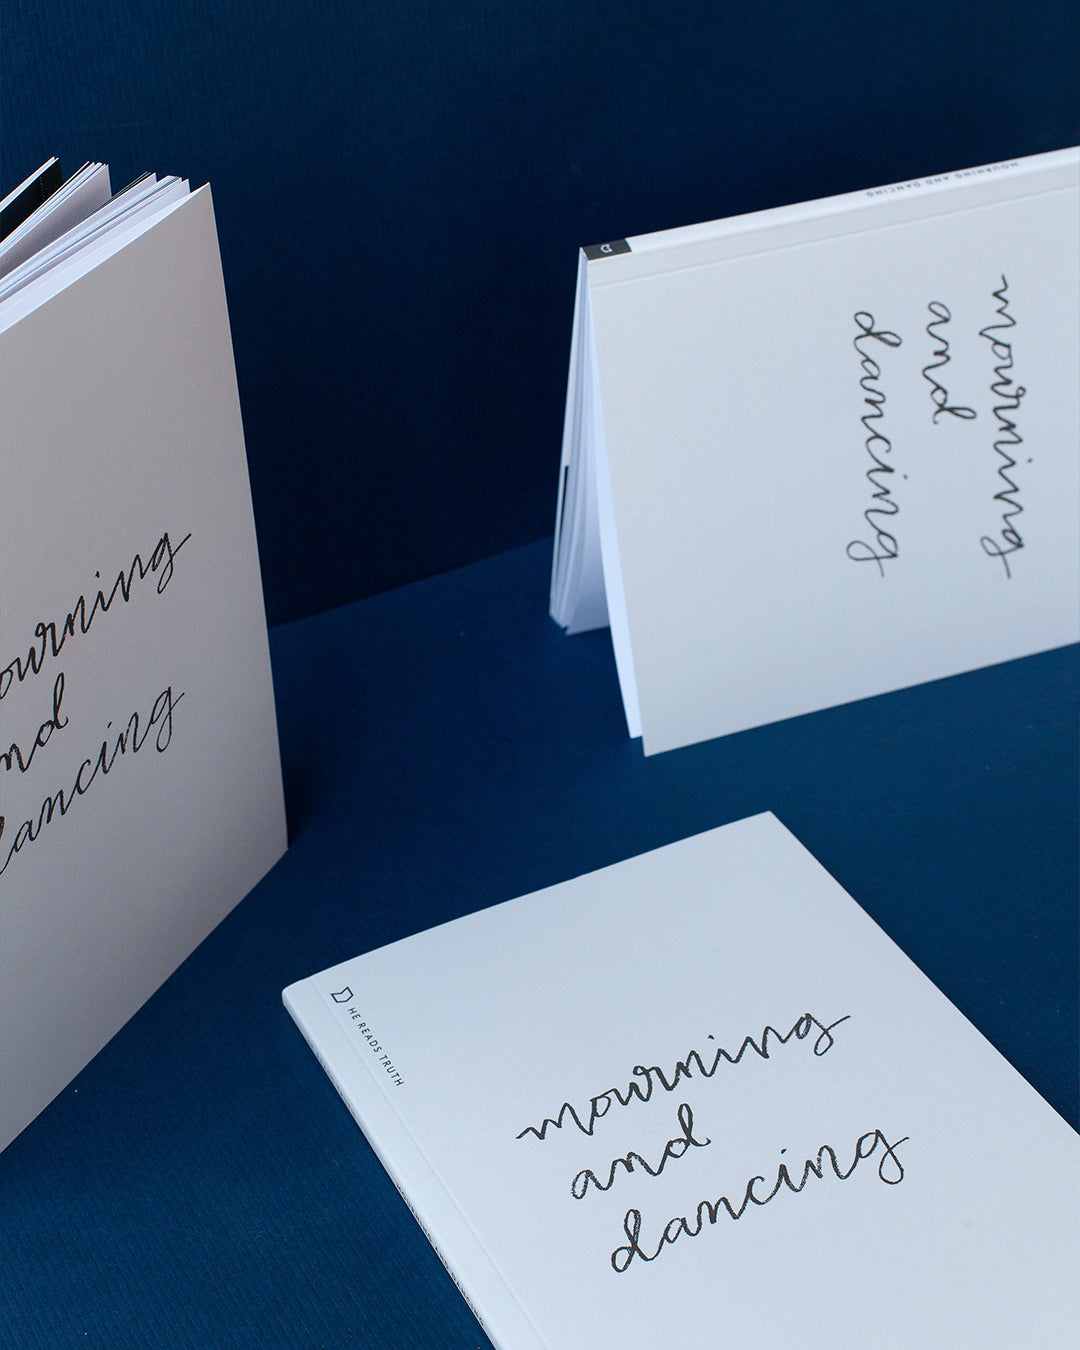 MOURNING AND DANCING
mourning
and
dancing
ourning
nd
dancing
HE READS TRUTH
mourning
and
dancing